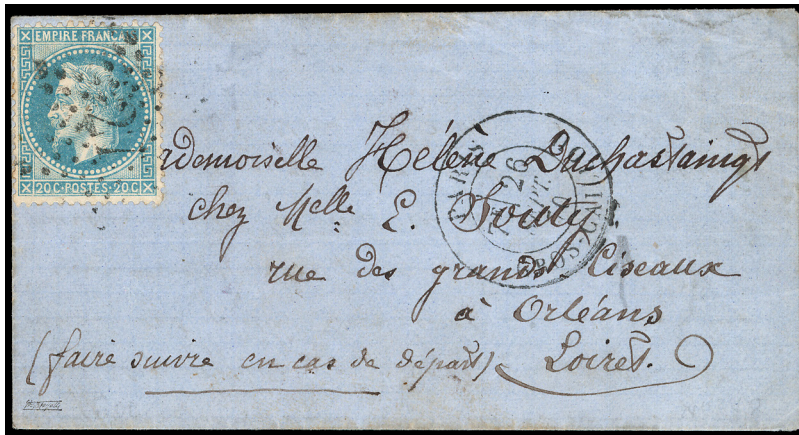 EMPIRE FRANÇAIS
20 C · POSTES · 20 C
Mademoiselle Hélène Duchastaings
chez Melle E.
rue des grands Ciseaux
à Orléans
(faire suivre en cas de départ) Loiret.
PARIS
26
SEPT.